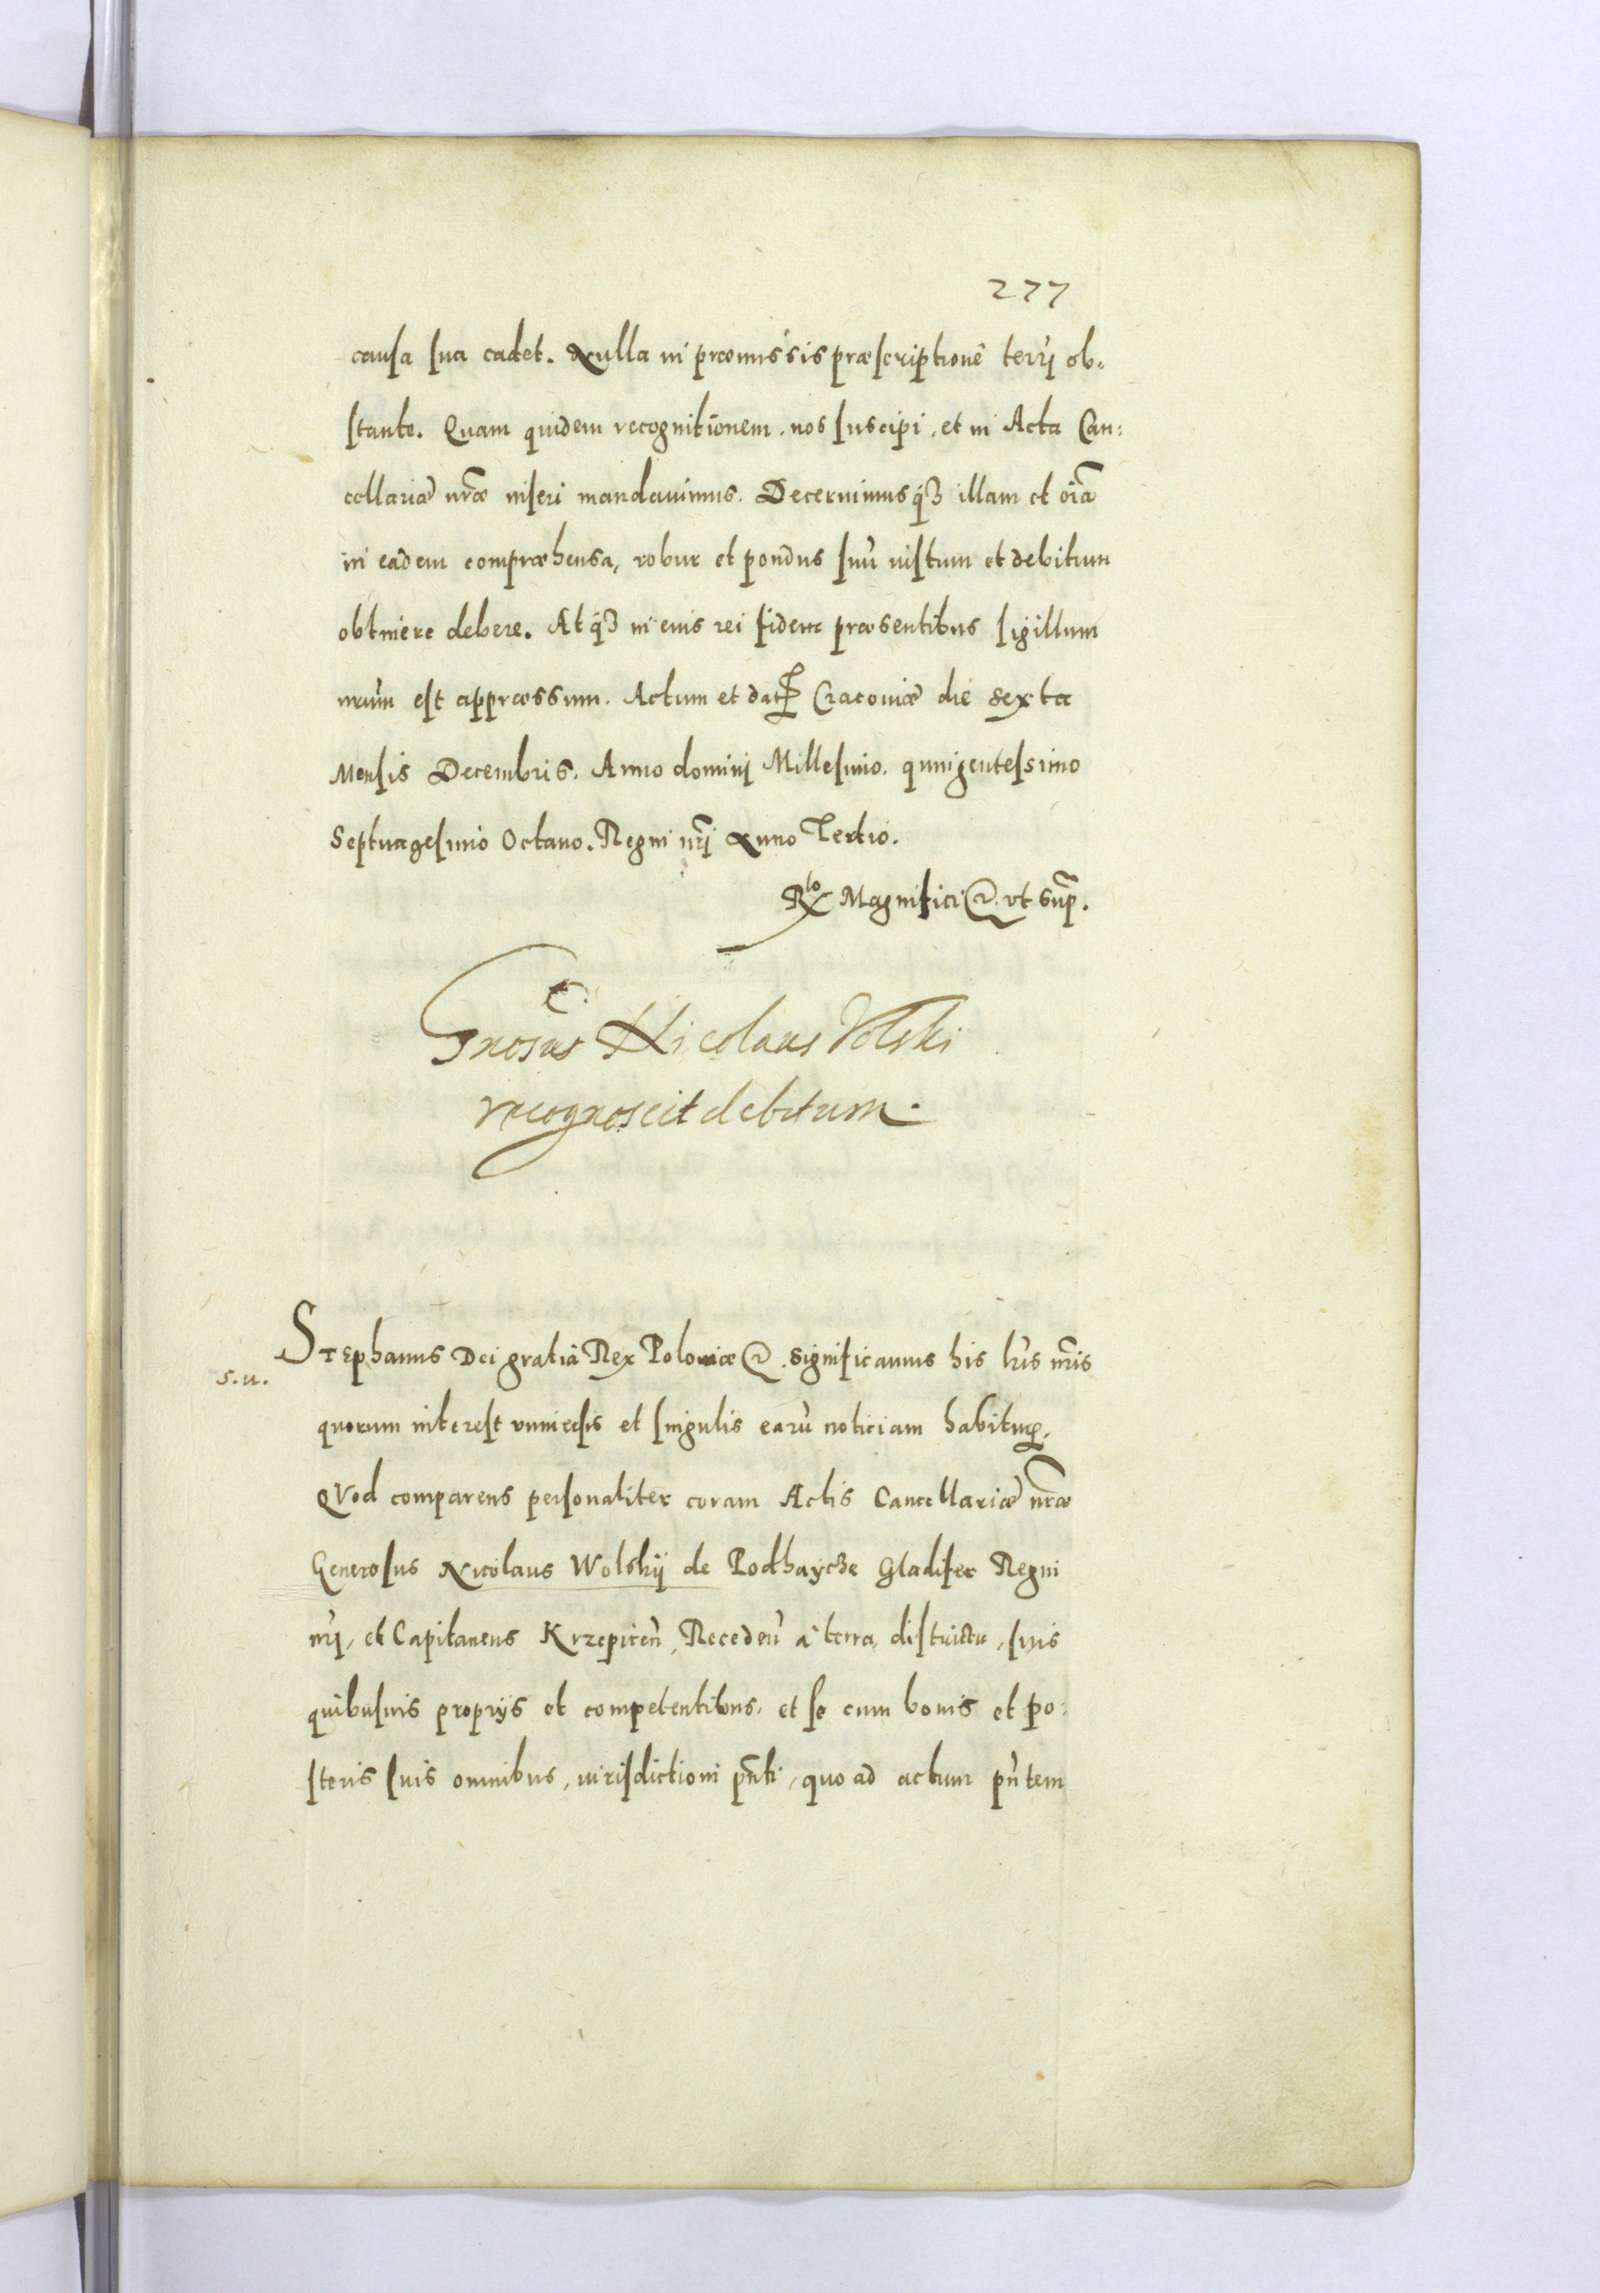 277
causa sua cadet. Nulla in præmissis præscriptione terrj ob-
stante. Quam quidem recognitionem, nos suscipi, et in Acta Can:
cellariæ nr̃æ inseri mandauimus. Decernimusq́ꝫ illam et oı̃a
in eadem compræhensa, robur et pondus suũ iustum et debitum
obtinere debere. Atq́ꝫ in eius rei fidem præsentibus sigillum
nr̃um est appræssum. Actum et dat Cracouiæ die sexta
Mensis Decembris. Anno dominj Millesimo. quingentessimo
Septuagesimo Octauo. Regni nr̃j Anno Tertio.
Rto Magnifici &. vt sup̃.
Gnosus Nicolaus Volski
recognoscit debitum.
Stephanus Dei gratiâ Rex Poloniæ &. significamus his lr̃is nr̃is
s.u.
quorum interest vniuersis et singulis earũ noticiam habitur.
QVod comparens personaliter coram Actis Cancellariæ nr̃æ
Generosus Nicolaus Wolskij de Podhaycze Gladifer Regni
nr̃j, et Capitaneus Krzepicen̄, Receden̄ à terra, districtu, suis
quibusuis proprijs et competentibus, et se cum bonis et po:
steris suis omnibus, iurisdictioni pñti, quo ad actum pñtem